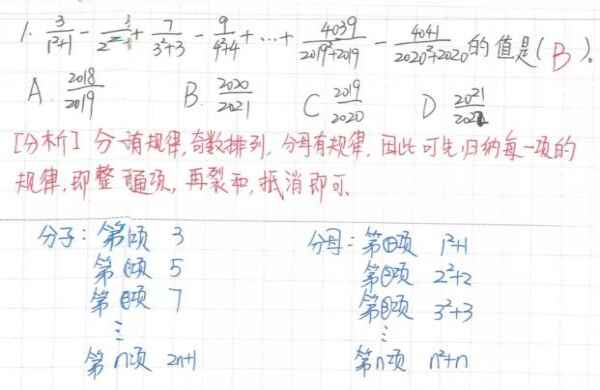 1. 3/(1²+1) - /(2²) + 7/(3²+3) - 9/(4²+4) + … + 4039/(2019²+2019) - 4041/(2020²+2020) 的值是( B )。
A. 2018/2019 B. 2020/2021 C 2019/2020 D 2021/2022
[分析] 分 有规律,奇数排列,分母有规律,因此可先归纳每一项的
规律,即整 通项,再裂和,抵消即可.
分子: 第①项 3 分母: 第①项 1²+1
第②项 5 第②项 2²+2
第③项 7 第③项 3²+3
⋮ ⋮
第n项 2n+1 第n项 n²+n